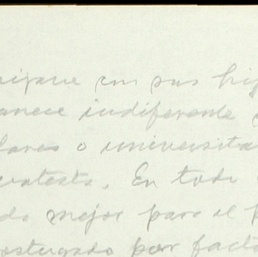 en sus hij
anece indiferente
lares o universita
En todo
do mejor para el p
ostergado por facto